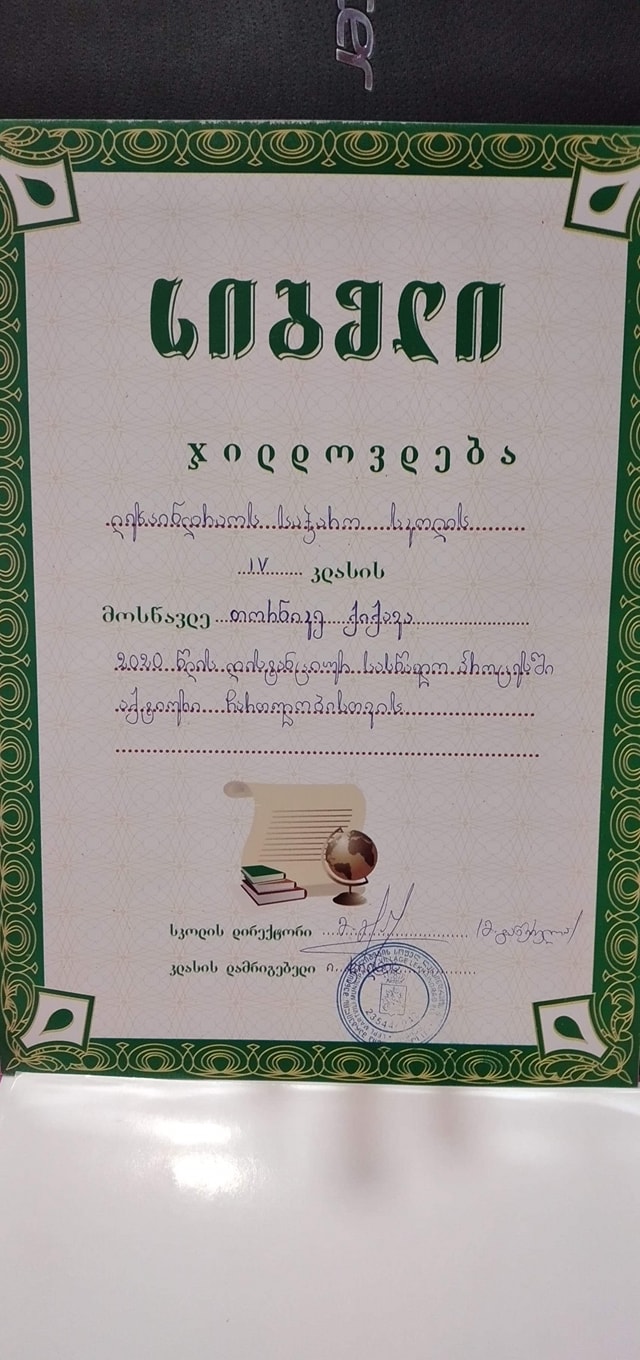 ter
სიგელი
ჯილდოვდება
ლესაინდრაოს საჯარო სკოლის
IV კლასის
მოსწავლე თორნიკე ქიქავა
2020 წლის დისტანციურ სასწავლო პროცესში
აქტიური ჩართულობისთვის
სკოლის დირექტორი
კლასის დამრიგებელი